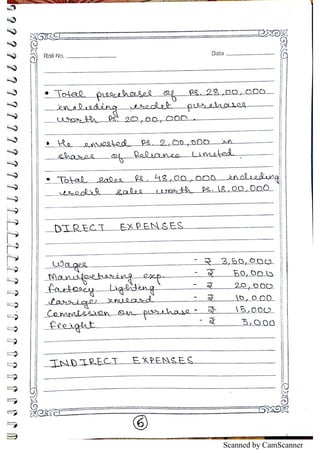 Roll No.
Date
• Total purchases of Rs. 28,00,000
including credit purchases
worth Rs. 20,00,000.
• He invested Rs. 2,00,000 in
shares of Reliance Limited.
• Total sales Rs. 48,00,000 including
credit sales worth Rs. 18,00,000.
DIRECT EXPENSES
Wages - ₹ 3,50,000
Manufacturing exp. - ₹ 50,000
Factory Lighting - ₹ 20,000
Carriage inward - ₹ 10,000
Commission on purchase - ₹ 15,000
Freight - ₹ 5,000
INDIRECT EXPENSES
6
Scanned by CamScanner